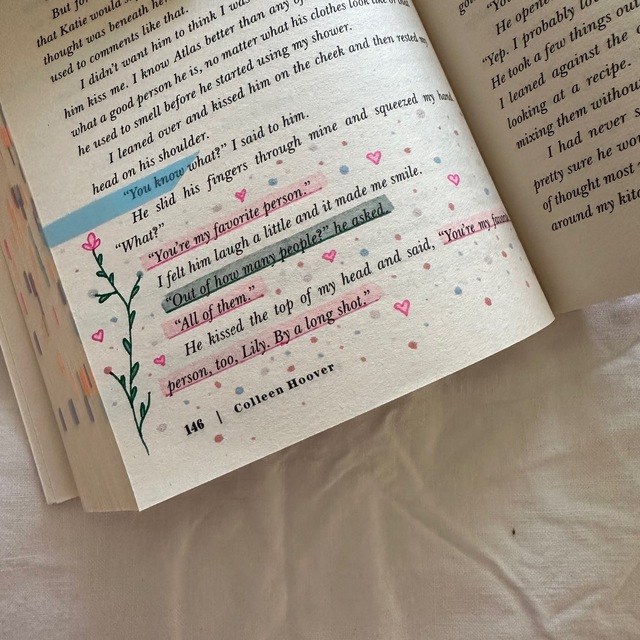 But for
that Katie would
thought was beneath her
used to comments like that.
I didn't want him to think I was
him kiss me. I know Atlas better than any of
what a good person he is, no matter what his clothes look like or
he used to smell before he started using my shower.
I leaned over and kissed him on the cheek and then rested my
head on his shoulder.
"You know what?" I said to him.
He slid his fingers through mine and squeezed my hand.
"What?"
"You're my favorite person."
I felt him laugh a little and it made me smile.
"Out of how many people?" he asked.
"All of them."
He kissed the top of my head and said, "You're my
person, too, Lily. By a long shot."
146 | Colleen Hoover
He opene
"Yep. I probably
He took a few things ou
I leaned against the
looking at a recipe.
mixing them withou
I had never s
pretty sure he wo
of thought most
around my kit